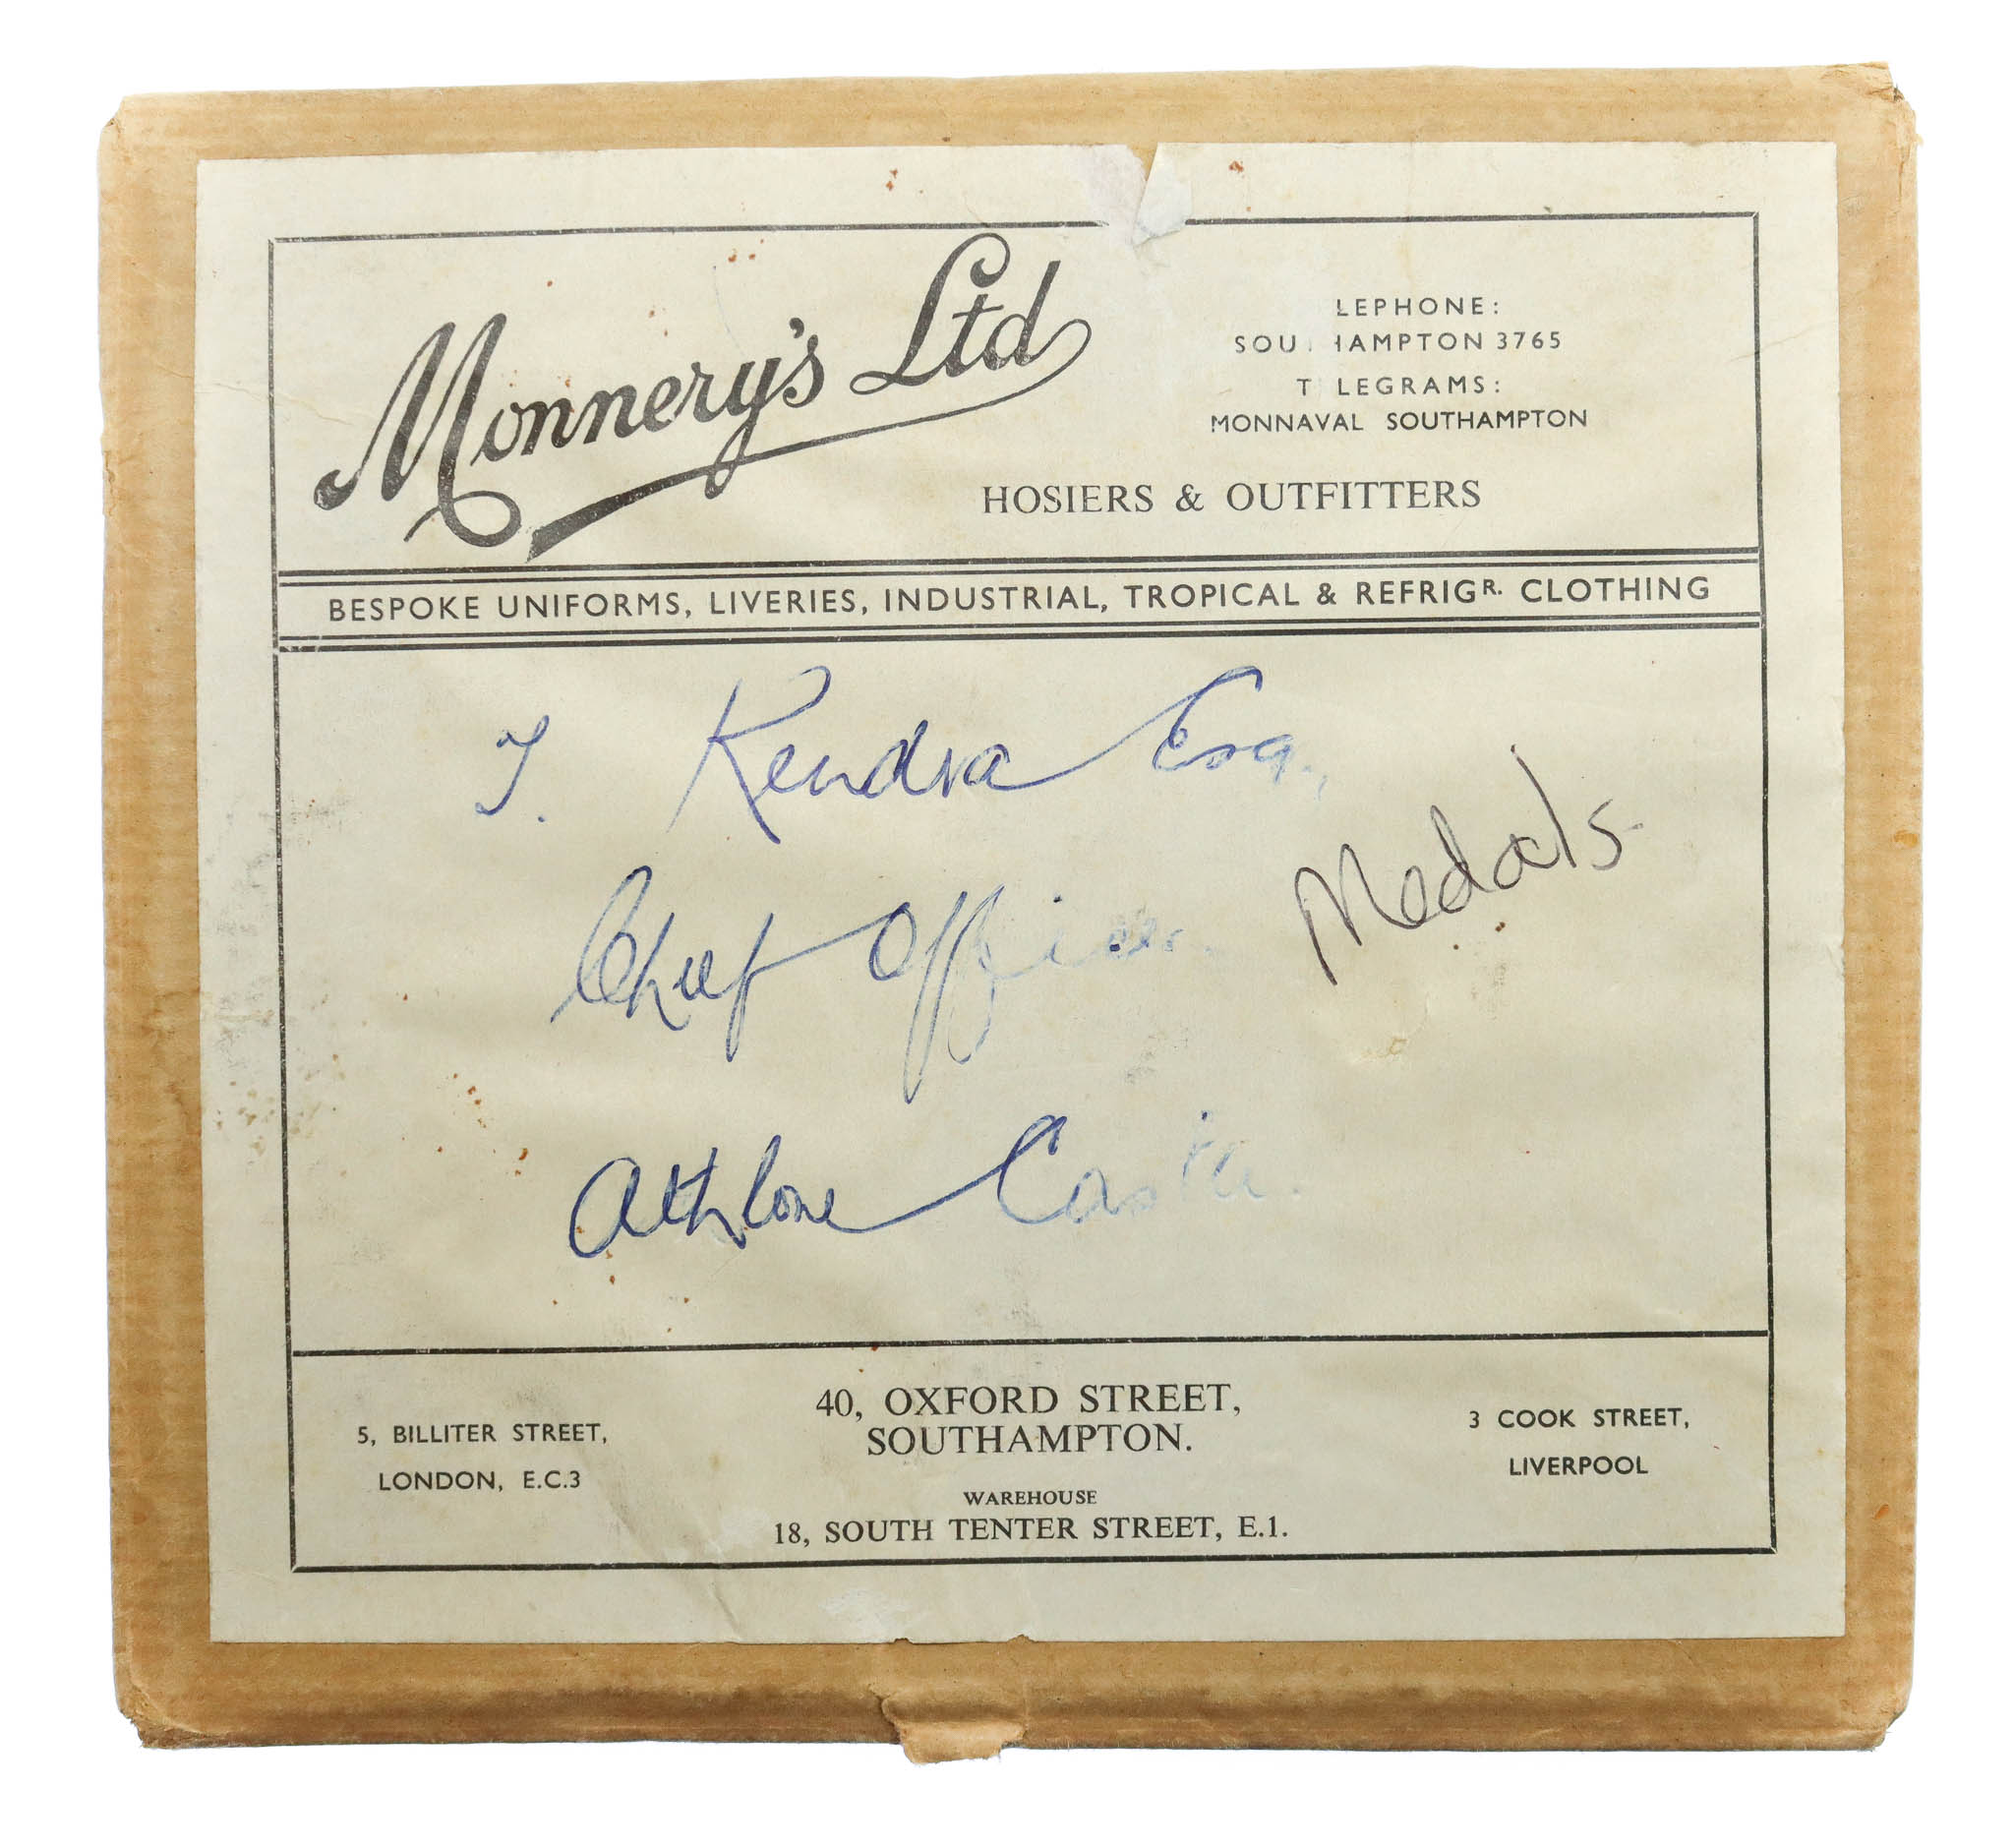 Monnery's Ltd
LEPHONE:
SOU HAMPTON 3765
T LEGRAMS:
MONNAVAL SOUTHAMPTON
HOSIERS & OUTFITTERS
BESPOKE UNIFORMS, LIVERIES, INDUSTRIAL, TROPICAL & REFRIGR. CLOTHING
J. Kendra Esq.,
Chief Officer.
Medals
Athlone Castle.
40, OXFORD STREET,
SOUTHAMPTON.
5, BILLITER STREET,
LONDON, E.C.3
3 COOK STREET,
LIVERPOOL
WAREHOUSE
18, SOUTH TENTER STREET, E.1.